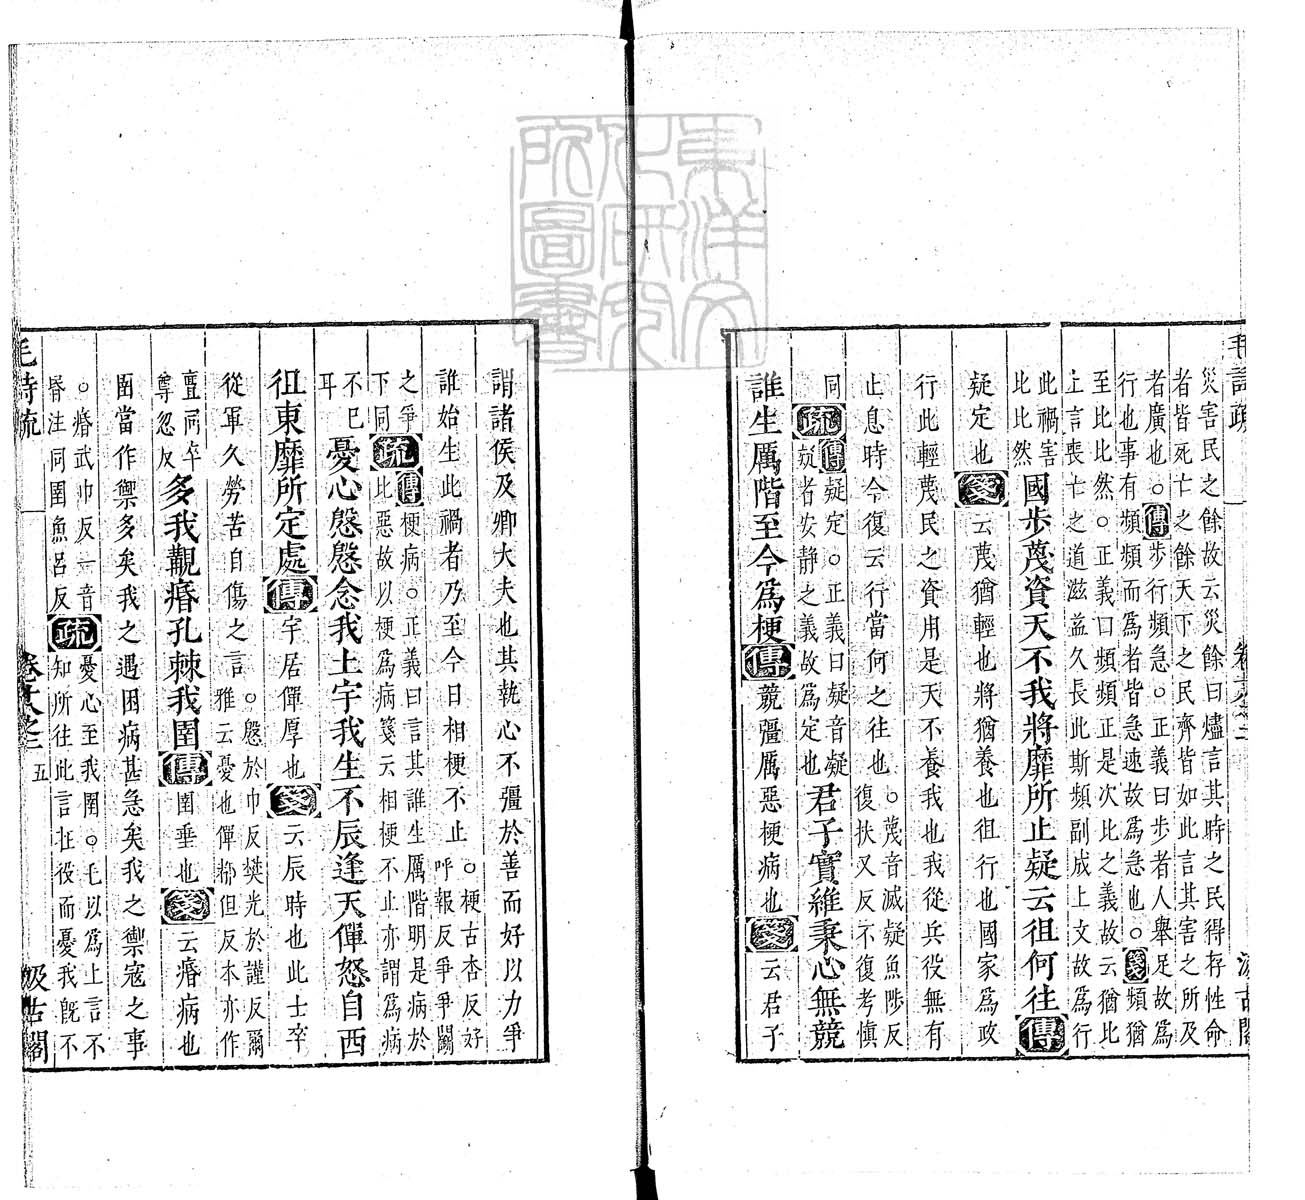 災害民之餘故云災餘曰燼言其時之民得存性命
者皆死亡之餘天下之民齊皆如此言其害之所及
者廣也○傳步行頻急○正義曰步者人舉足故爲
行也事有頻頻而爲者皆急速故爲急也○箋頻猶
至比比然○正義曰頻頻正是次比之義故云猶比
上言喪亡之道滋益久長此斯頻副成上文故爲行
此禍害
比比然
國步蔑資天不我將靡所止疑云徂何往傳
疑定也箋云蔑猶輕也將猶養也徂行也國家爲政
行此輕蔑民之資用是天不養我也我從兵役無有
止息時今復云行當何之往也○蔑音滅疑魚陟反
復扶又反不復考慎
同疏傳疑定○正義曰疑音凝
疑者安靜之義故爲定也
君子實維秉心無競
誰生厲階至今爲梗傳競彊厲惡梗病也箋云君子
謂諸侯及卿大夫也其執心不彊於善而好以力爭
誰始生此禍者乃至今日相梗不止○梗古杏反好
呼報反爭爭鬬
之爭
下同
疏傳梗病○正義曰言其誰生厲階明是病於
比惡故以梗爲病箋云相梗不止亦謂爲病
不已
耳
憂心慇慇念我土宇我生不辰逢天僤怒自西
徂東靡所定處傳宇居僤厚也箋云辰時也此士卒
從軍久勞苦自傷之言○慇於巾反樊光於謹反爾
雅云憂也僤都但反本亦作
亶同卒
尊忽反
多我覯痻孔棘我圉傳圉垂也箋云痻病也
圉當作禦多矣我之遇困病甚急矣我之禦寇之事
○痻武巾反一音
昬注同圉魚呂反
疏憂心至我圉○毛以爲上言不
知所往此言在役而憂我旣不
毛詩疏
卷十八之二
五
汲古閣